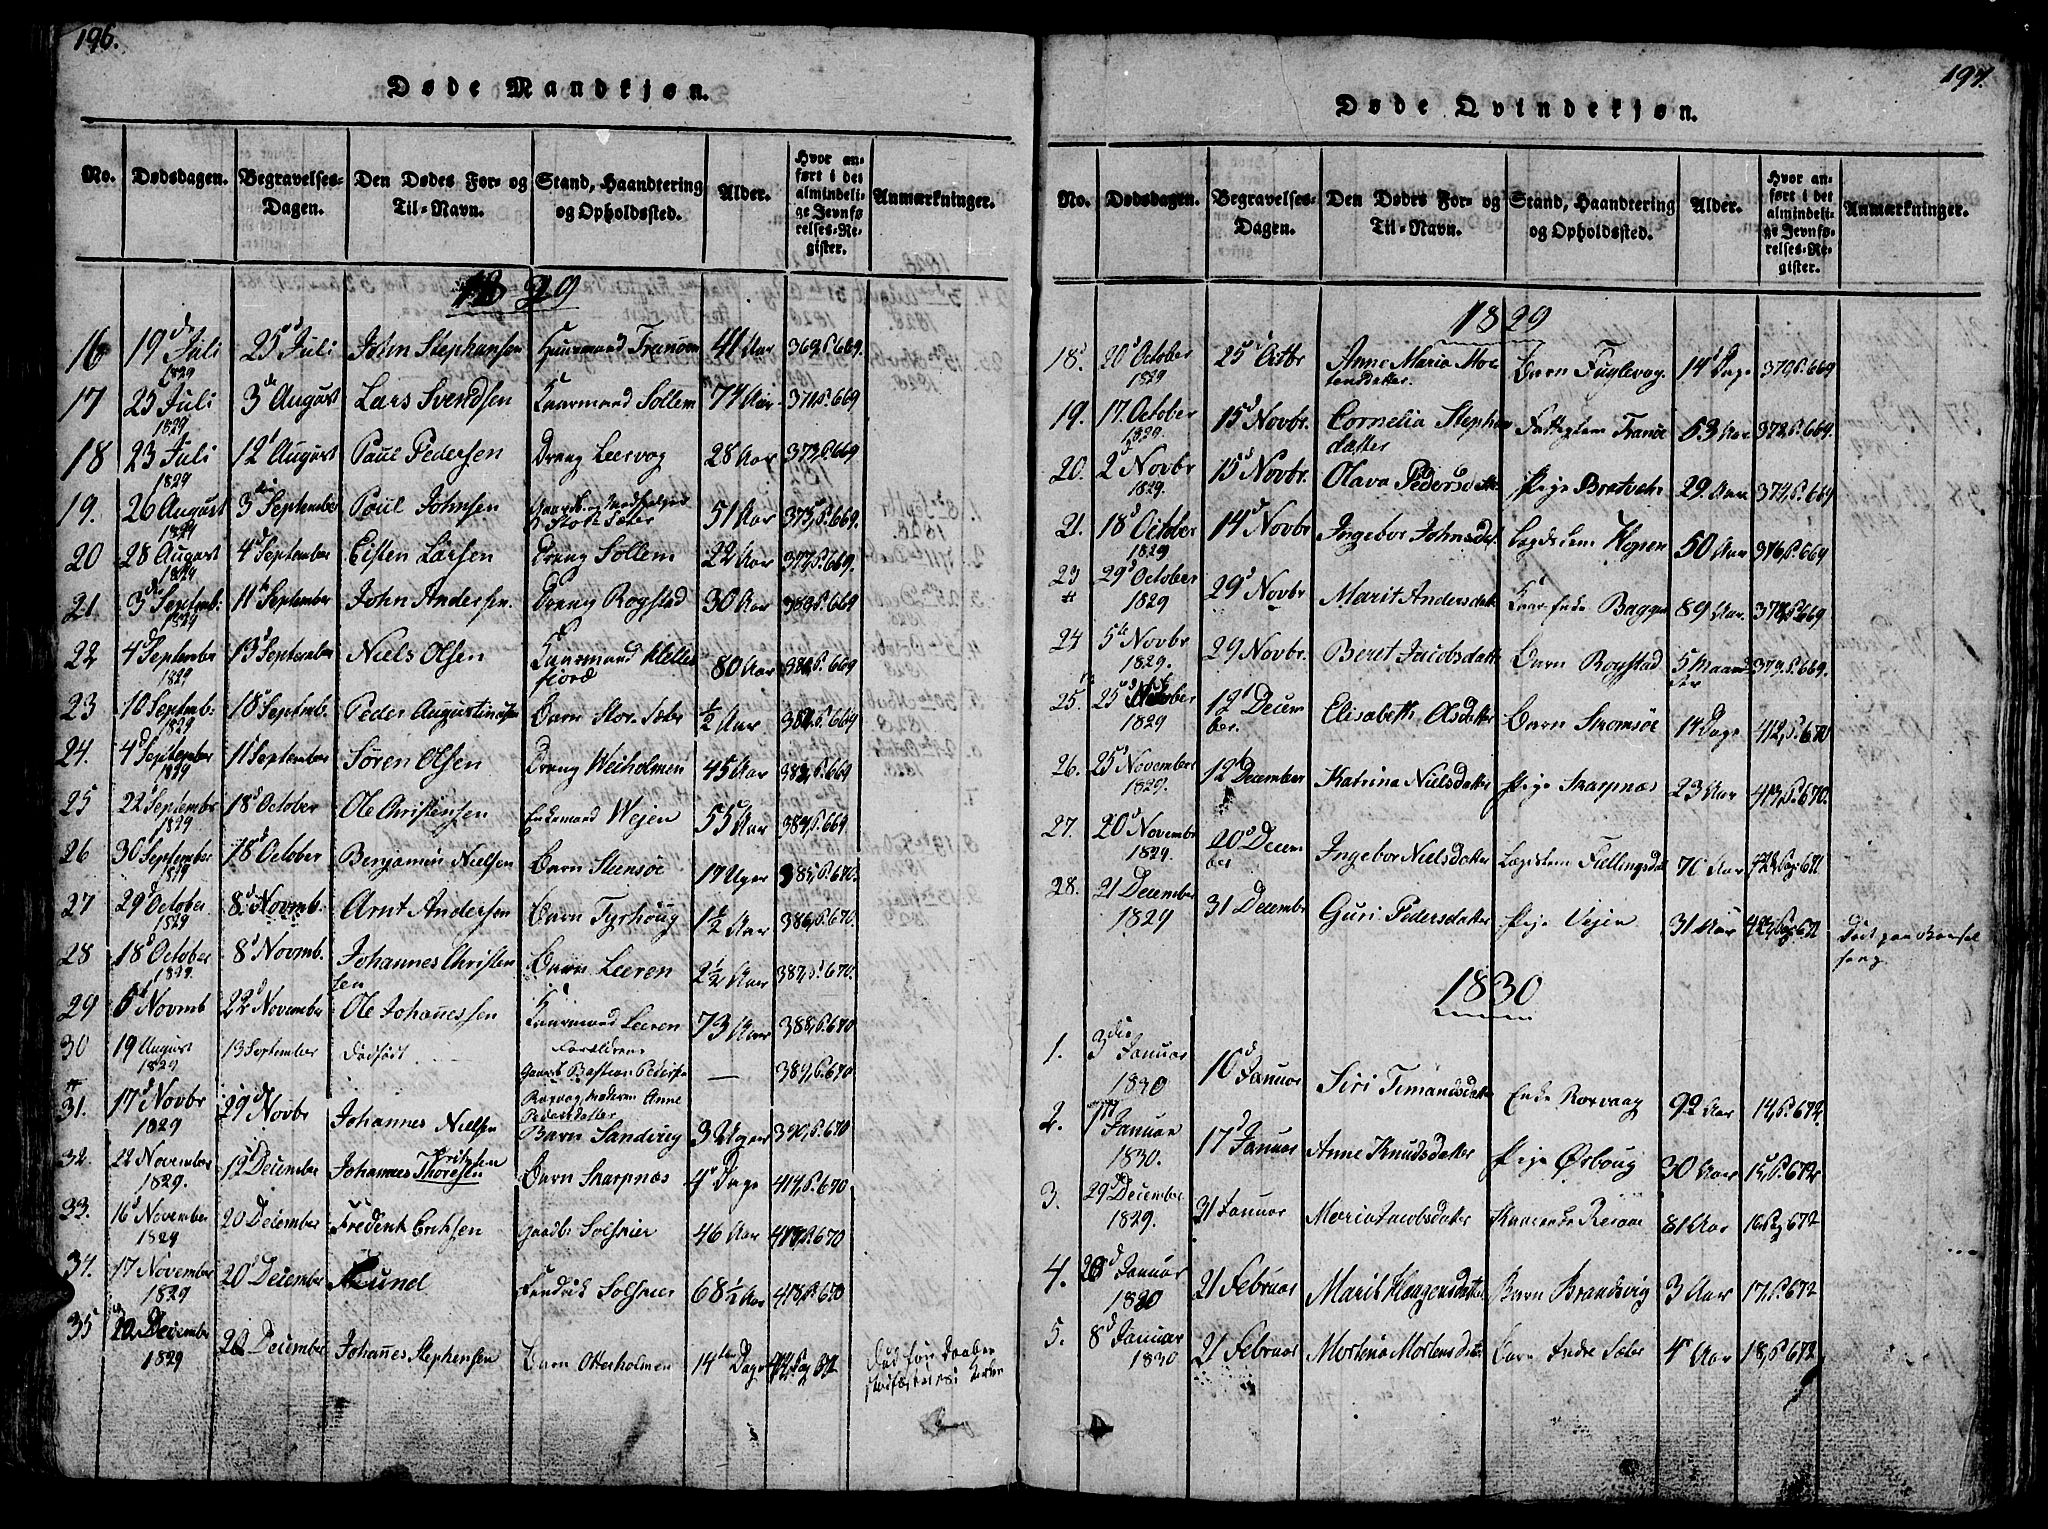 196.
Døde Mandkjøn.
No. Dødsdagen. Begravelses-Dagen. Den Dødes For- og Til-Navn. Stand, Haandtering og Opholdssted. Alder. Hvor anført i det almindelige Jevnførelses-Register. Anmærkninger.
1829
16 19 Juli 1829 25 Juli John Stephensen Huusmand Tranöen 41 Aar 369, S. 669.
17 25 Juli 1829 3 August Lars Svendsen Kaarmand Sollem 74 Aar 371, S. 669
18 23 Juli 1829 12 August Paul Pedersen Dreng Leervog 28 Aar 373, S. 669
19. 26 August 1829 3 September Poul Johnsen 51 Aar 375, S. 669.
20 28 August 1829 4 September Eisten Larsen Dreng Sollem 22 Aar 377, S. 669.
21. 3 Septemb: 1829 11 September John Andersen. Dreng Rogstad 30 Aar 669
22 4 September 1829 13 September Niels Olsen Kaarmand 80 Aar 669
23 10 Septemb: 1829 18 Septemb. Peder Barn Stor-Sæter ½ Aar 669
24. 4 September 1829 11 September Sören Olsen Dreng Weiholmen 45 Aar 669
25 22 Septembr 1829 18 October Ole Christensen Enkemand Wejen 55 Aar 384, S. 669.
26 30 September 1829 18 October Benjamin Nielsen Barn Steensöe 17 Uger 385, S. 670.
27 29 October 1829 8 Novmb. Arnt Andersen Barn Tyrhoug 1½ Aar 386, S. 670.
28 18 October 1829. 8 Novmb. Johannes Christensen Barn Leeren 2½ Aar 387, S. 670.
29 6 Novmb 22 November Ole Johannessen Kaarmand Leeren 73 Aar 388, S. 670
30 19 August 1829 13 September Dødfødt Forældrene Gaardb Bastian Pedersen Roxvog Moderen Anne Pedersdatter — 389, S. 670
31. 17 Novbr 1829 29 Novbr Johannes Nielsen Barn Sandvig 3 Uger 390, S. 670
32. 22 November 1829. 12 December Johannes Thoresen Barn Skarpnæs 4 Dage 414, S. 670
33. 16 November 1829 20 December Frederik Eriksen Gaardb: Solskier 46 Aar 417, S. 670
34. 17 November 1829 20 December Fredrik Solskier 68½ Aar 418, S. 670
35 December 1829 20 December Johannes Stephensen Barn Otterholmen 14 Dage
197.
Døde Qvindekjøn.
No. Dødsdagen. Begravelses-Dagen. Den Dødes For- og Til-Navn. Stand, Haandtering og Opholdssted. Alder. Hvor anført i det almindelige Jevnførelses-Register. Anmærkninger.
1829
18. 20 October 1829 25 Octbr Anne Maria Mortensdatter. Barn Fuglevog 14 Dage 370, S. 669
19. 17. October 1829. 15 Novbr. Cornelia Stephensdatter Fattiglem Tranöe 53 Aar 372, S. 669.
20. 2 Novbr 1829. 15 Novbr. Olava Pedersdatter Pige Bratvær 29. Aar 374, S. 669
21. 18 October 1829 14 Novbr Ingebor Johnsdatter Lægdslem Hopen 50 Aar 376, S. 669
23 29 October 1829 29 Novbr Marit Andersdatter Kaar-Enke Bagge 89 Aar. 378, S. 669
24 5 Novbr 1829. 29 Novbr. Beret Jacobsdatter Barn Rogstad 5 Maaneder 379, S. 669.
25. 25 October 1829 12 December. Elisabeth Olsdatter Barn Stromsöe 14 Dage 412, S. 670
26. 25 November 1829. 12 December Katrina Nielsdatter Pige Skarpnæs 23 Aar 413, S. 670.
27. 20 November 1829. 20 December Ingebor Nielsdatter Lægdslem Fuellingsdal 76 Aar
28. 21 December 1829 31 December Guri Pedersdatter Pige Vejen 31 Aar Død paa Barselseng.
1830
1. 3die Januar 1830 10 Januar Siri Timandsdatter Enke Roxvaag 92 Aar 14, S. 672.
2. 1ste Januar 1830. 17 Januar Anne Knudsdatter Pige Ørboug 30 Aar 15, S. 672
3. 29 December 1829. 31 Januar Maria Jacobsdatter Kaarenke 81 Aar 16 Pg 672
4. Januar 1830 21 Februar Marit Haagensdatter Barn Brandsvig 3 Aar 17, S. 672
5. 8 Januar 1830 21 Februar Mortina Mortensdatter Barn Indre Sæter 4 Aar 18, S. 672